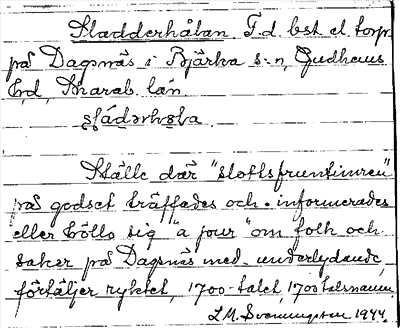 Sladderhålan F.d. bst el. torp
på Dagsnäs i Bjärka s:n, Gudhems
hd, Skarab. län

Ställe där "slottsfruntimren"
på godset träffades och informerades
eller höllo sig "a jour" om folk och
saker på Dagsnäs med underlydande,
förtäljer ryktet, 1700-talet, 1700talsnamn
L.M. Svenungsson 1944.